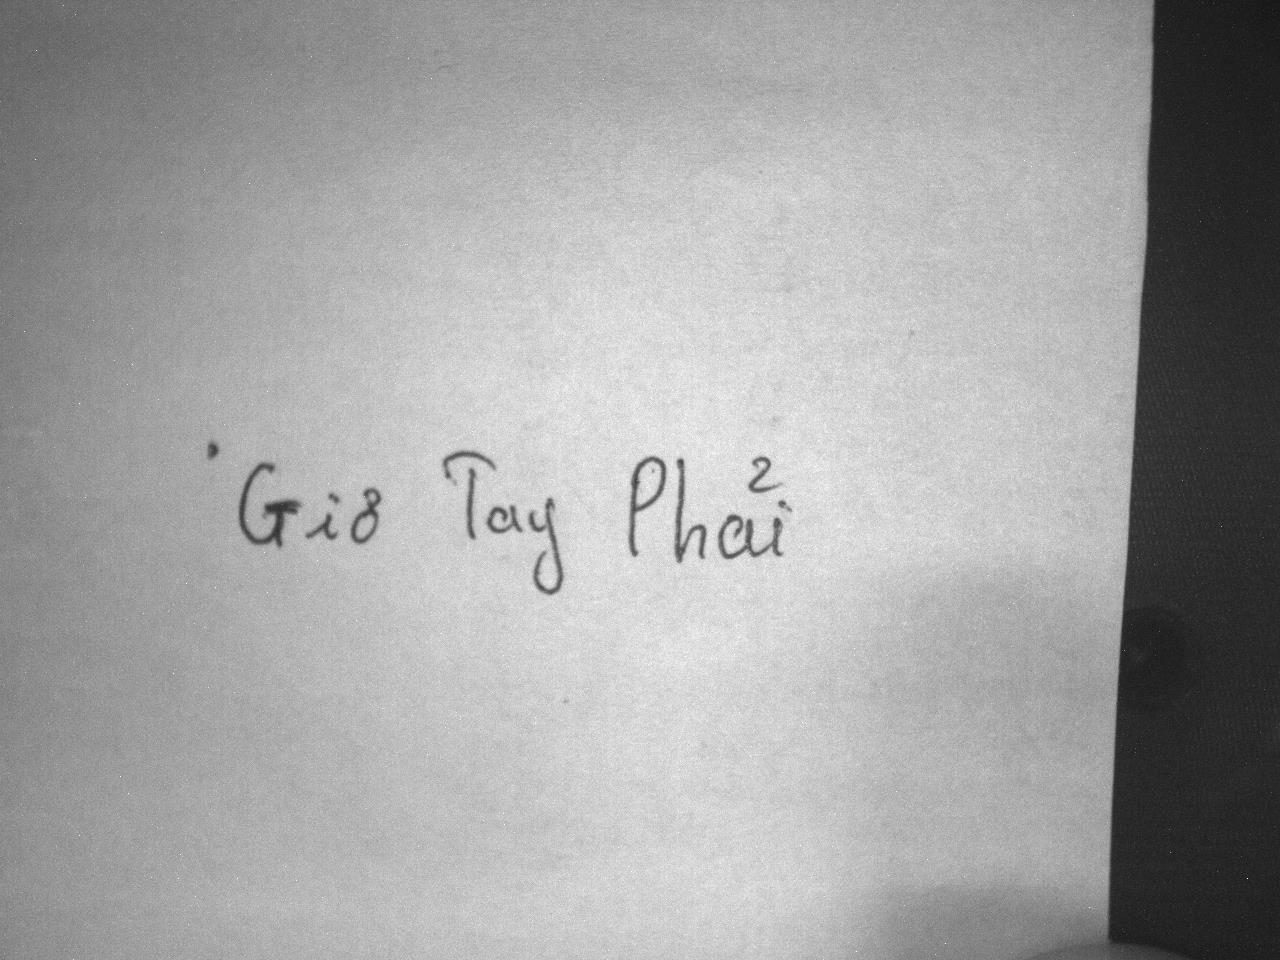 Giơ Tay Phải